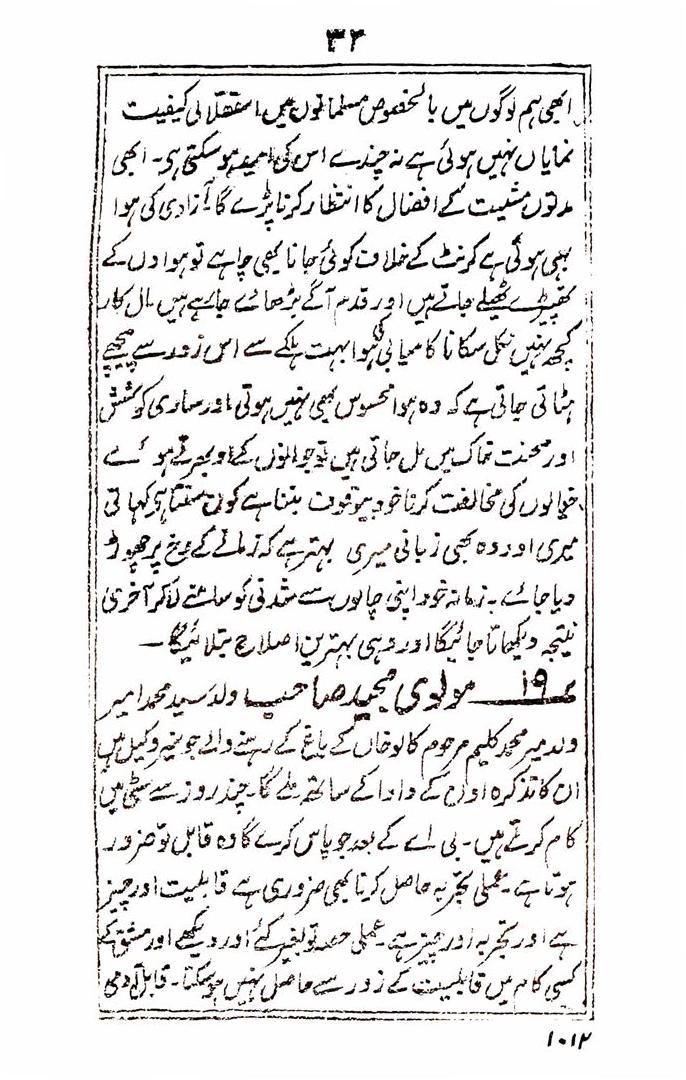 ۳۲
ابھی ہم لوگوں میں بالخصوص مسلمانوں میں استقلالی کیفیت
نمایاں نہیں ہوئی ہے نہ چندے اس کی امید ہو سکتی ہی۔ ابھی
مدتوں مشیت کے افضال کا انتظار کرنا پڑے گا۔ آزادی کی ہوا
بہی ہوئی ہے کرنٹ کے خلاف کوئی جانا بھی چاہے تو ہواؤں کے
تھپیڑے ٹھیلے جاتے ہیں اور قدم آگے بڑھائے جا رہے ہیں مال کار
کچھ نہیں نکل سکا ناکامیابی کی ہوا بہت ہلکے سے اس زور سے پیچھے
ہٹاتی جاتی ہے کہ وہ ہوا محسوس بھی نہیں ہوتی اور ساری کوشش
اور محنت خاک میں مل جاتی ہیں نوجوانوں کے اوبھرتے ہوئے
خیالوں کی مخالفت کرنا خود بیوقوف بننا ہے کون سنتا ہی کہانی
میری اور وہ بھی زبانی میری بہتر ہے کہ زمانے کے رخ پر چھوڑ
دیا جائے۔ زمانہ خود اپنی چالوں سے متمدنی کو سامنے لا کر آخری
نتیجہ دیکھاتا جائیگا اور وہی بہترین اصلاح بتلائیگا۔
۱۹ مولوی مجید صاحب ولد سید محمد امیر
ولد میر محمد کلیم مرحوم کالو خاں کے باغ کے رہنے والے جونیر وکیل ہیں
ان کا تذکرہ اون کے دادا کے ساتھ ملے گا۔ چند روز سے سٹی میں
کام کرتے ہیں۔ بی اے کے بعد جو پاس کرے گا وہ قابل تو ضرور
ہوتا ہے۔ عملی تجربہ حاصل کرنا بھی ضروری ہے قابلیت اور چیز
ہے اور تجربہ اور چیز ہے۔ عملی حصہ تو بغیر کئے اور دیکھے اور مشق کے
کسی کام میں قابلیت کے زور سے حاصل نہیں ہو سکتا۔ قابل آدمی
۱۰۱۲